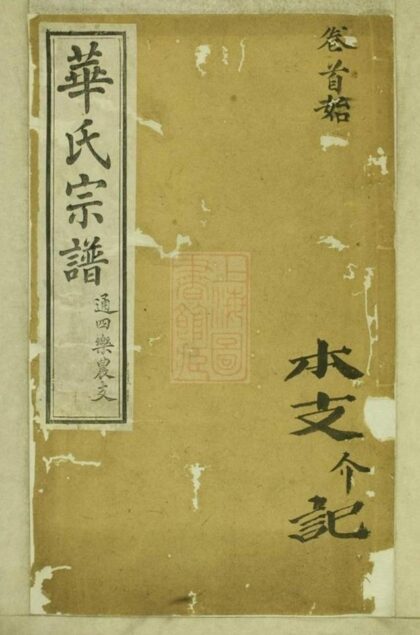 卷首始
水支介記
上海圖
書館藏
華氏宗譜
通四樂農支